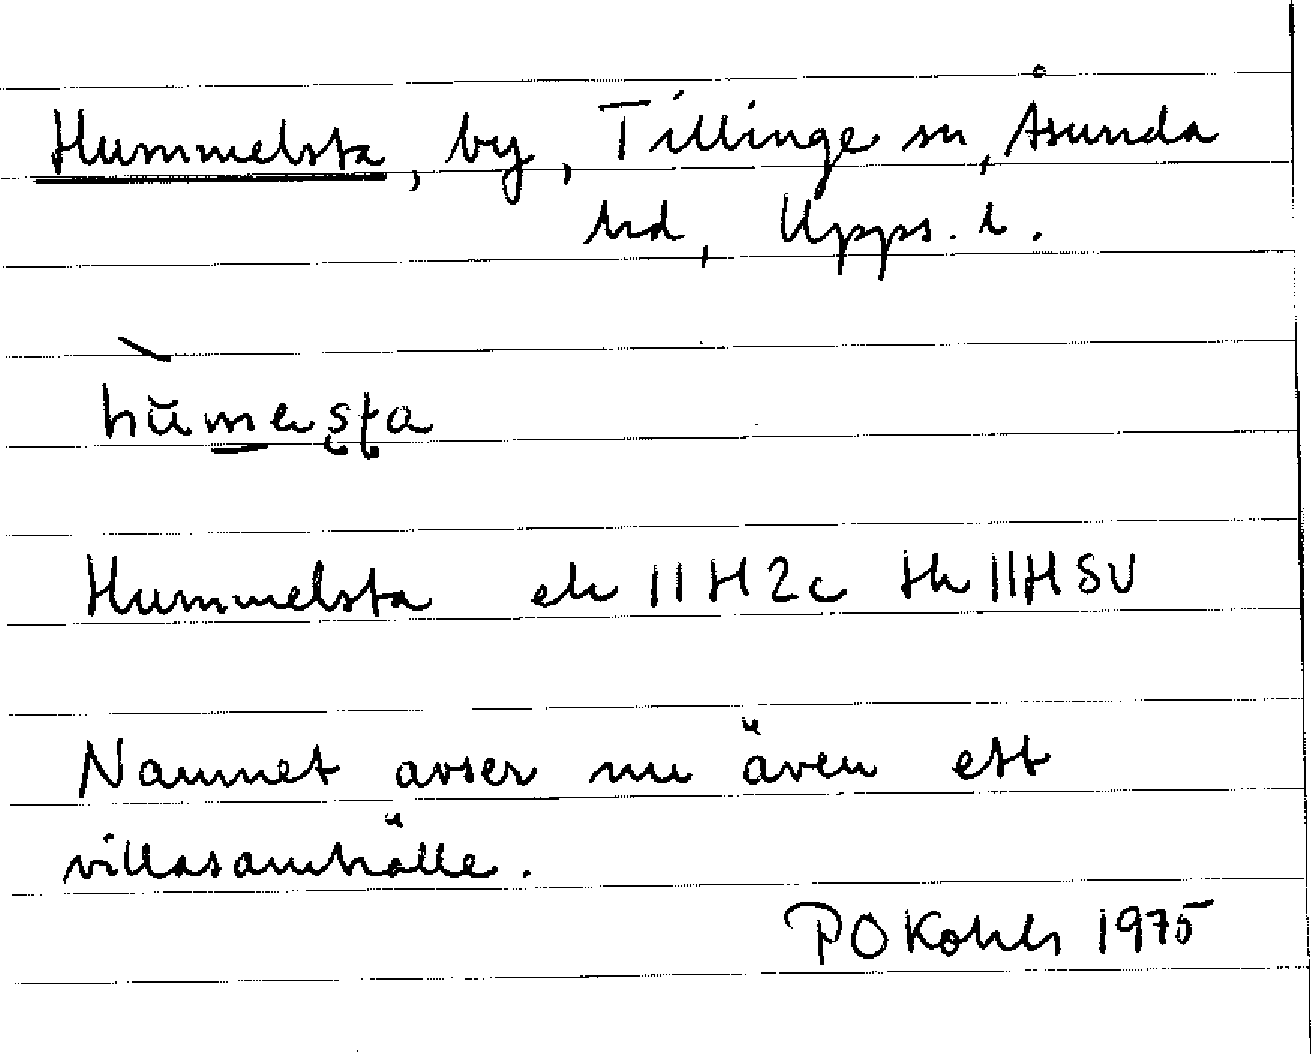 Hummelsta, by, Tillinge sn, Åsunda
hd, Upps. l.
hŭmesta
Hummelsta ek 11H2c tk 11HSV
Namnet avser nu även ett
villasamhälle.
PO Kohls 1975